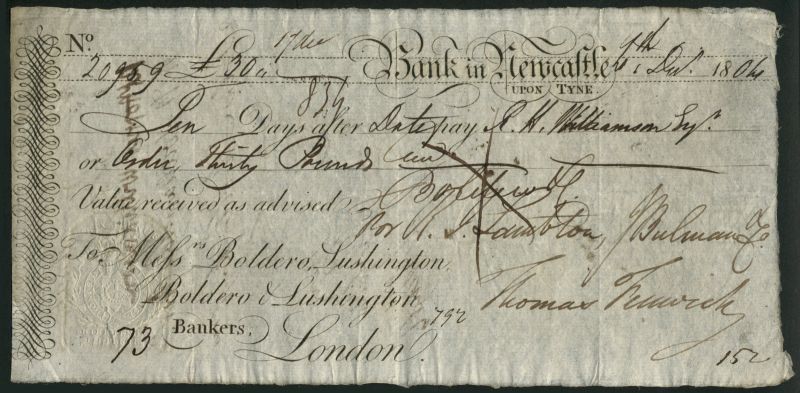 No. 17 Dec Bank in Newcastle 4th Decr. 1804
20989 £30 UPON TYNE
834
Ten Days after Date pay R. H. Williamson Esqr.
or Order, Thirty Pounds
Value received as advised
for R. J. Lambton, J Bulman & Co
To Messrs Boldero, Lushington,
Boldero & Lushington
792 Thomas Fenwick
73 Bankers,
London. 152